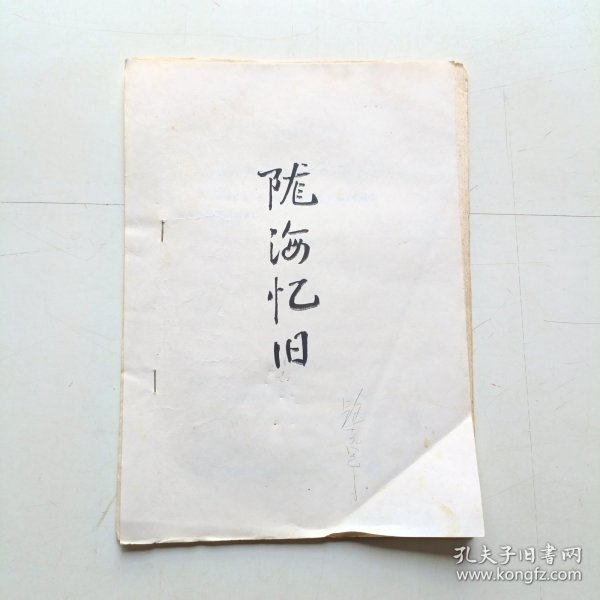 陇海忆旧
孔夫子旧書网
www.kongfz.com